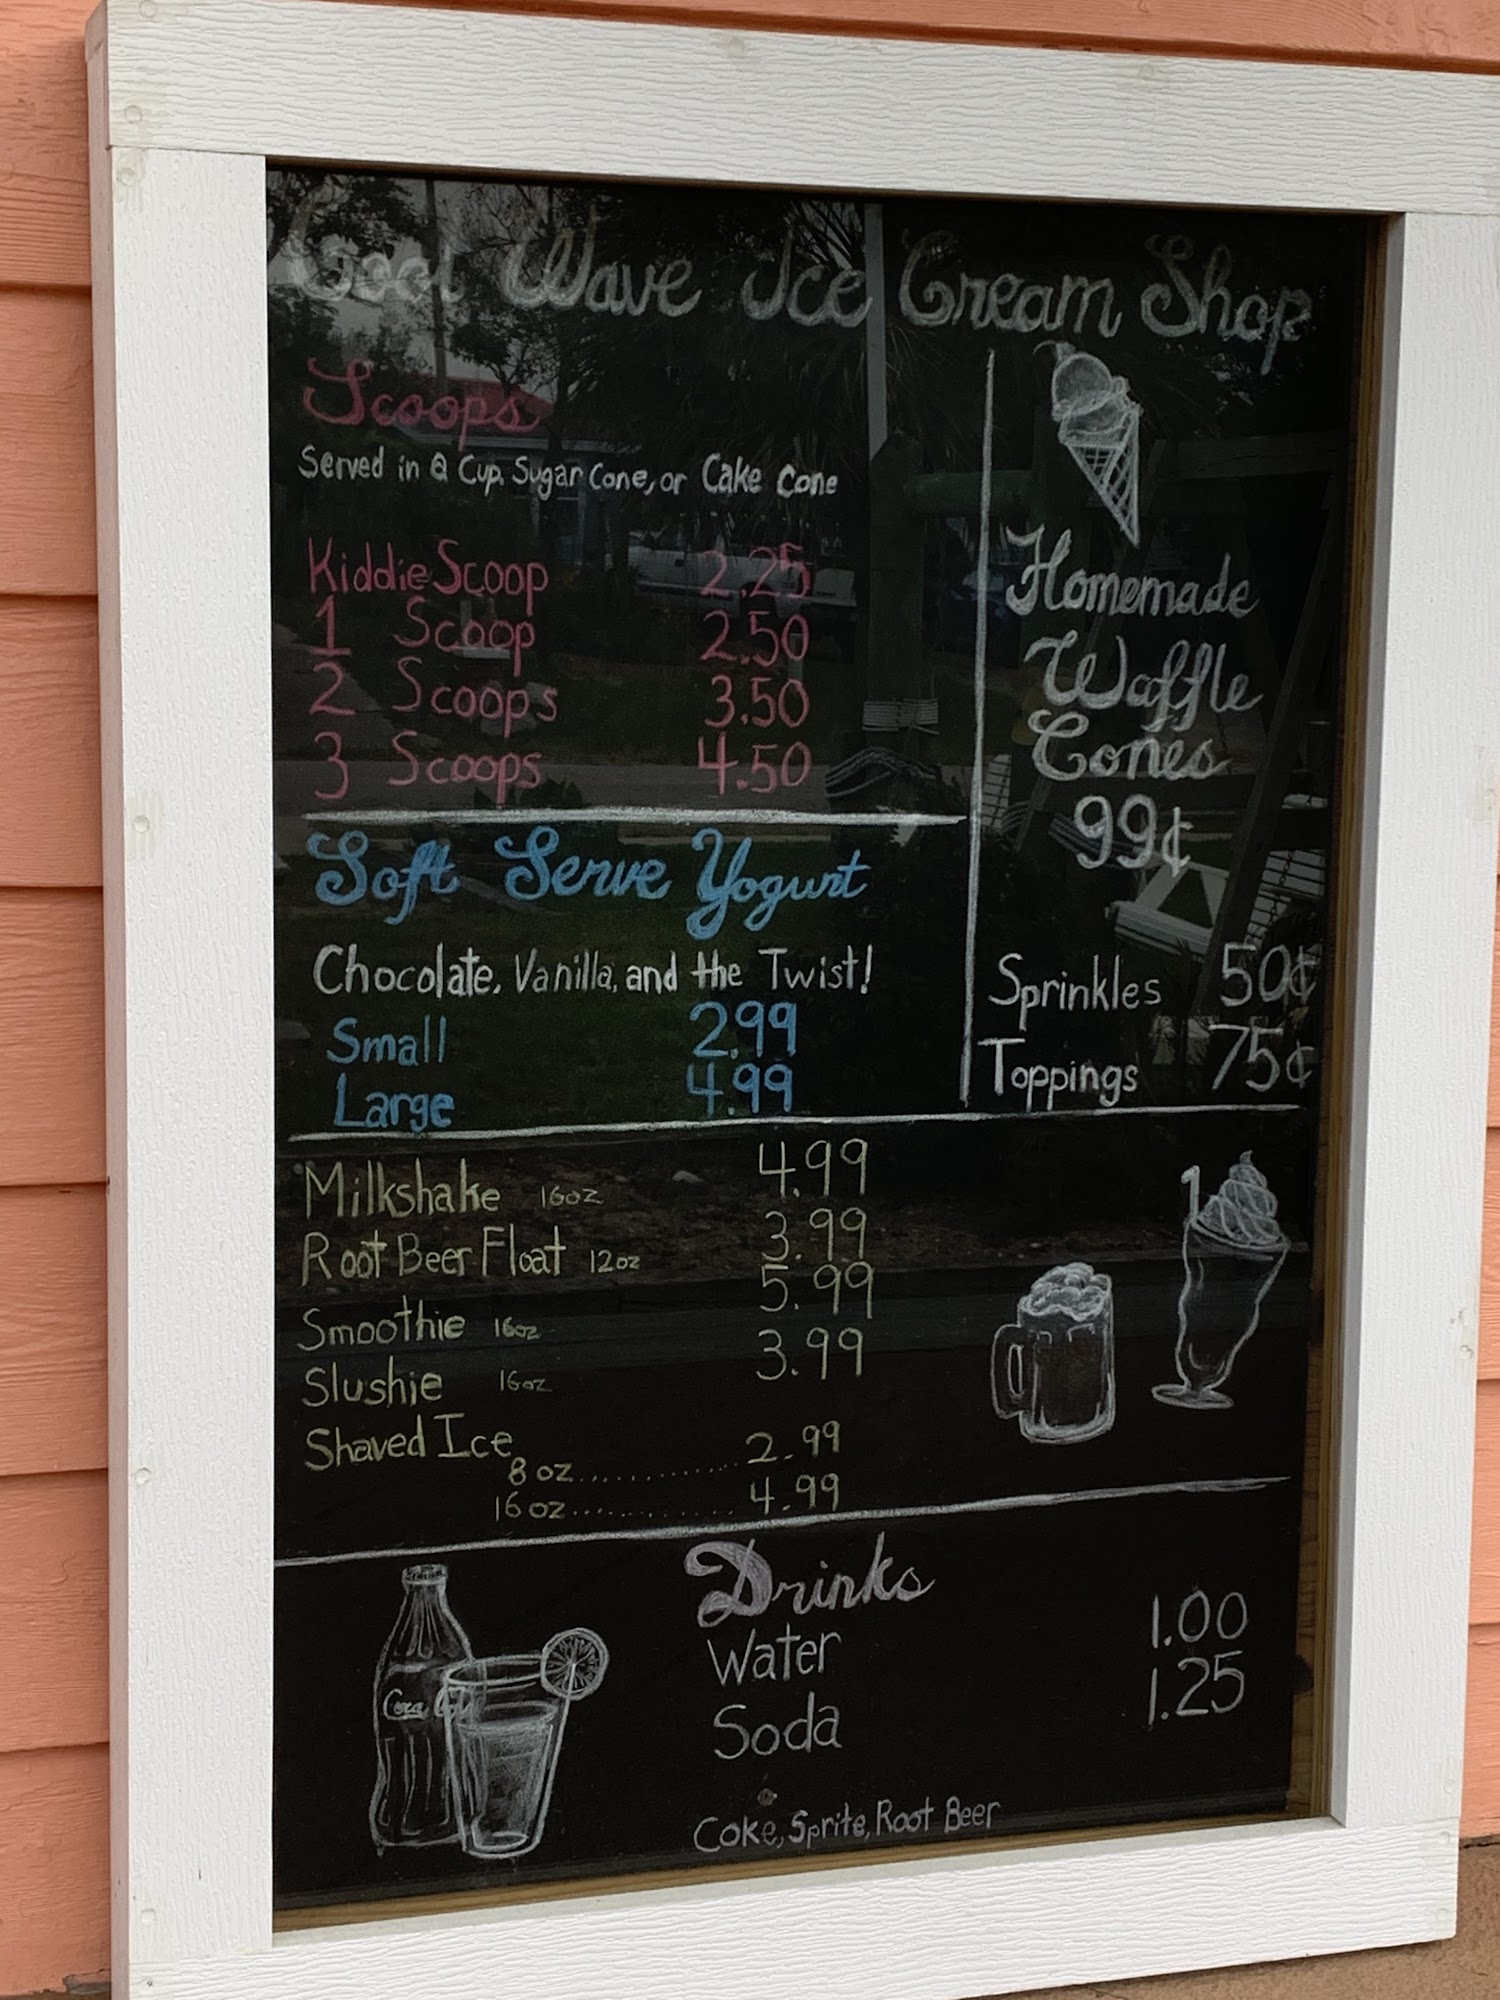 Cool Wave Ice Cream Shop
Scoops
Served in a Cup, Sugar Cone, or Cake Cone
Kiddie Scoop 2.25
1 Scoop 2.50
2 Scoops 3.50
3 Scoops 4.50
Homemade
Waffle
Cones
99¢
Sprinkles 50¢
Toppings 75¢
Soft Serve Yogurt
Chocolate, Vanilla, and the Twist!
Small 2.99
Large 4.99
Milkshake 16oz 4.99
Root Beer Float 12oz 3.99
Smoothie 16oz 5.99
Slushie 16oz 3.99
Shaved Ice
8 oz............ 2.99
16 oz............ 4.99
Drinks
Water 1.00
Soda 1.25
Coke, Sprite, Root Beer
Coca Cola